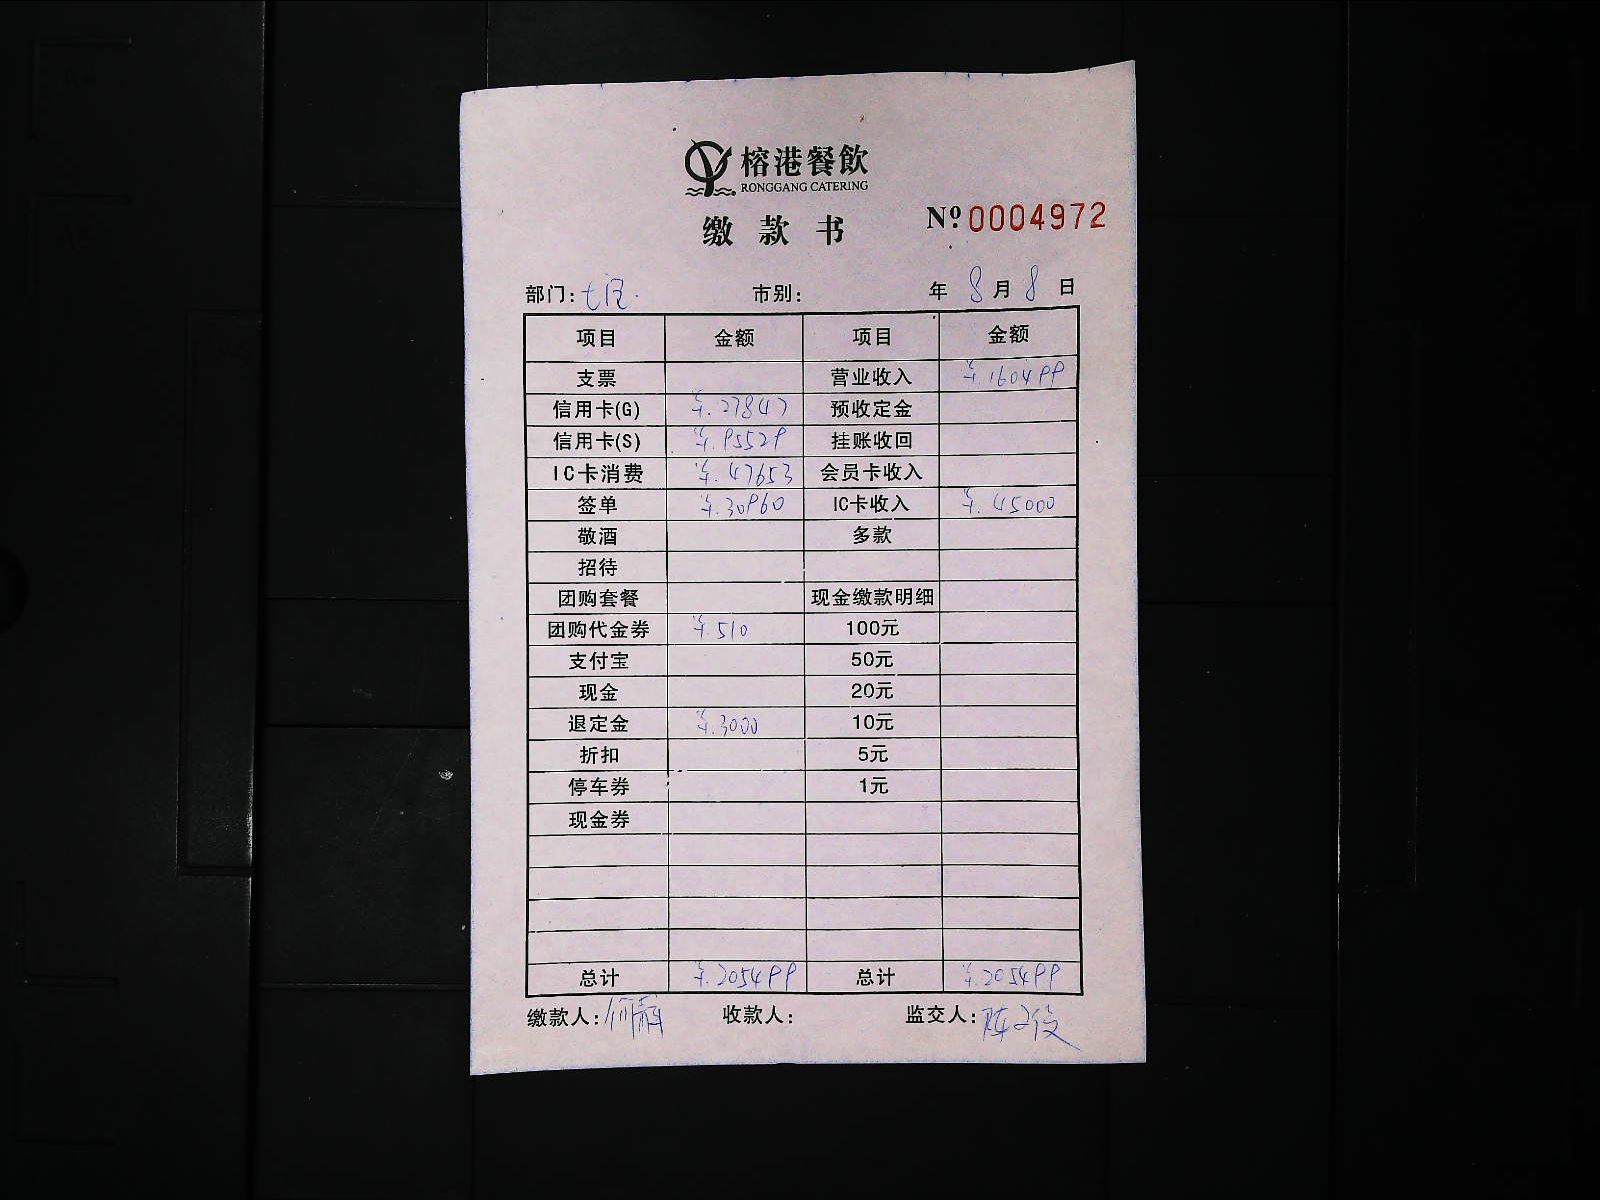 榕港餐飲
RONGGANG CATERING
缴款书
Nº 0004972
部门: 市别: 年 8 月 8 日
项目 金额 项目 金额
支票 营业收入 ¥.160499
信用卡(G) ¥.27847 预收定金
信用卡(S) ¥.95529 挂账收回
IC卡消费 ¥.47653 会员卡收入
签单 ¥.30960 IC卡收入 ¥.45000
敬酒 多款
招待
团购套餐 现金缴款明细
团购代金券 ¥.510 100元
支付宝 50元
现金 20元
退定金 ¥.3000 10元
折扣 5元
停车券 1元
现金券
总计 ¥.205499 总计 ¥.205499
缴款人: 收款人: 监交人: